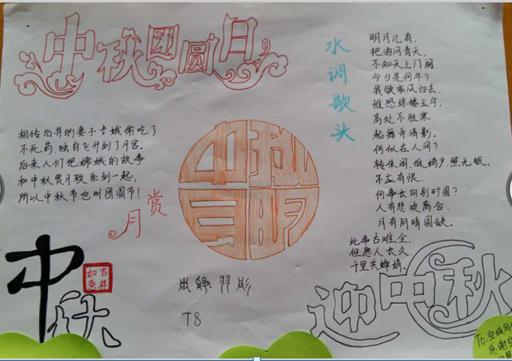 中秋团圆日
相传后羿的妻子嫦娥偷吃了
不死药,独自飞升到了月宫。
后来人们把嫦娥的故事
和中秋赏月联系到一起,
所以中秋节也叫团圆节!
赏月
中秋
吉祥如意
中秋
T8
水调歌头
明月几有,
把酒问青天,
不知天上门阙,
今夕是何年?
我欲乘风归去,
惟恐琼楼玉宇,
高处不胜寒
起舞弄清影,
何似在人间?
转朱阁,低绮户,照无眠,
不应有恨,
何事长向别时圆?
人有悲欢离合,
月有阴晴圆缺,
此事古难全,
但愿人长久
千里共婵娟。
迎中秋